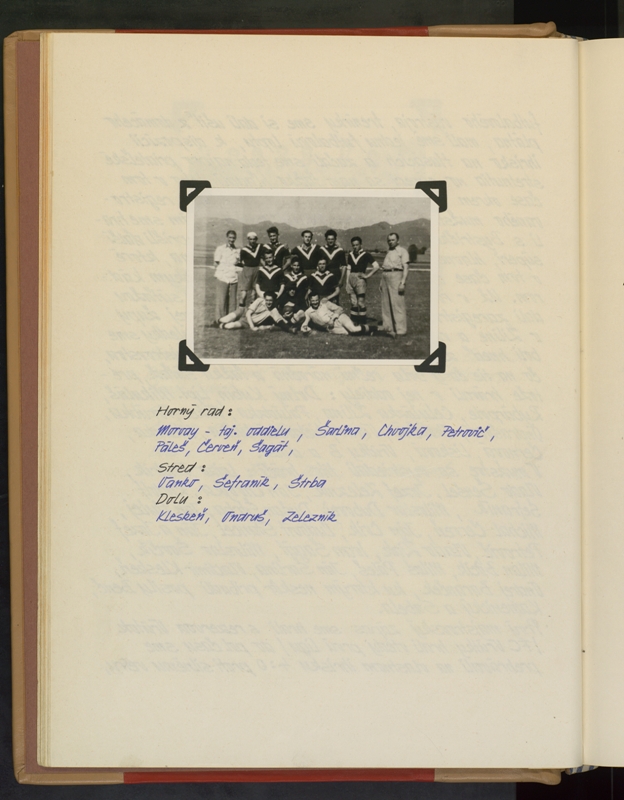 Horný rad :
Morvay - taj. oddielu , Šarlina , Chvojka , Petrovič ,
Páleš, Červeň, Šagát ,
Stred :
Vanko , Šefraník , Štrba
Dolu :
Kleskeň , Ondruš , Zelezník